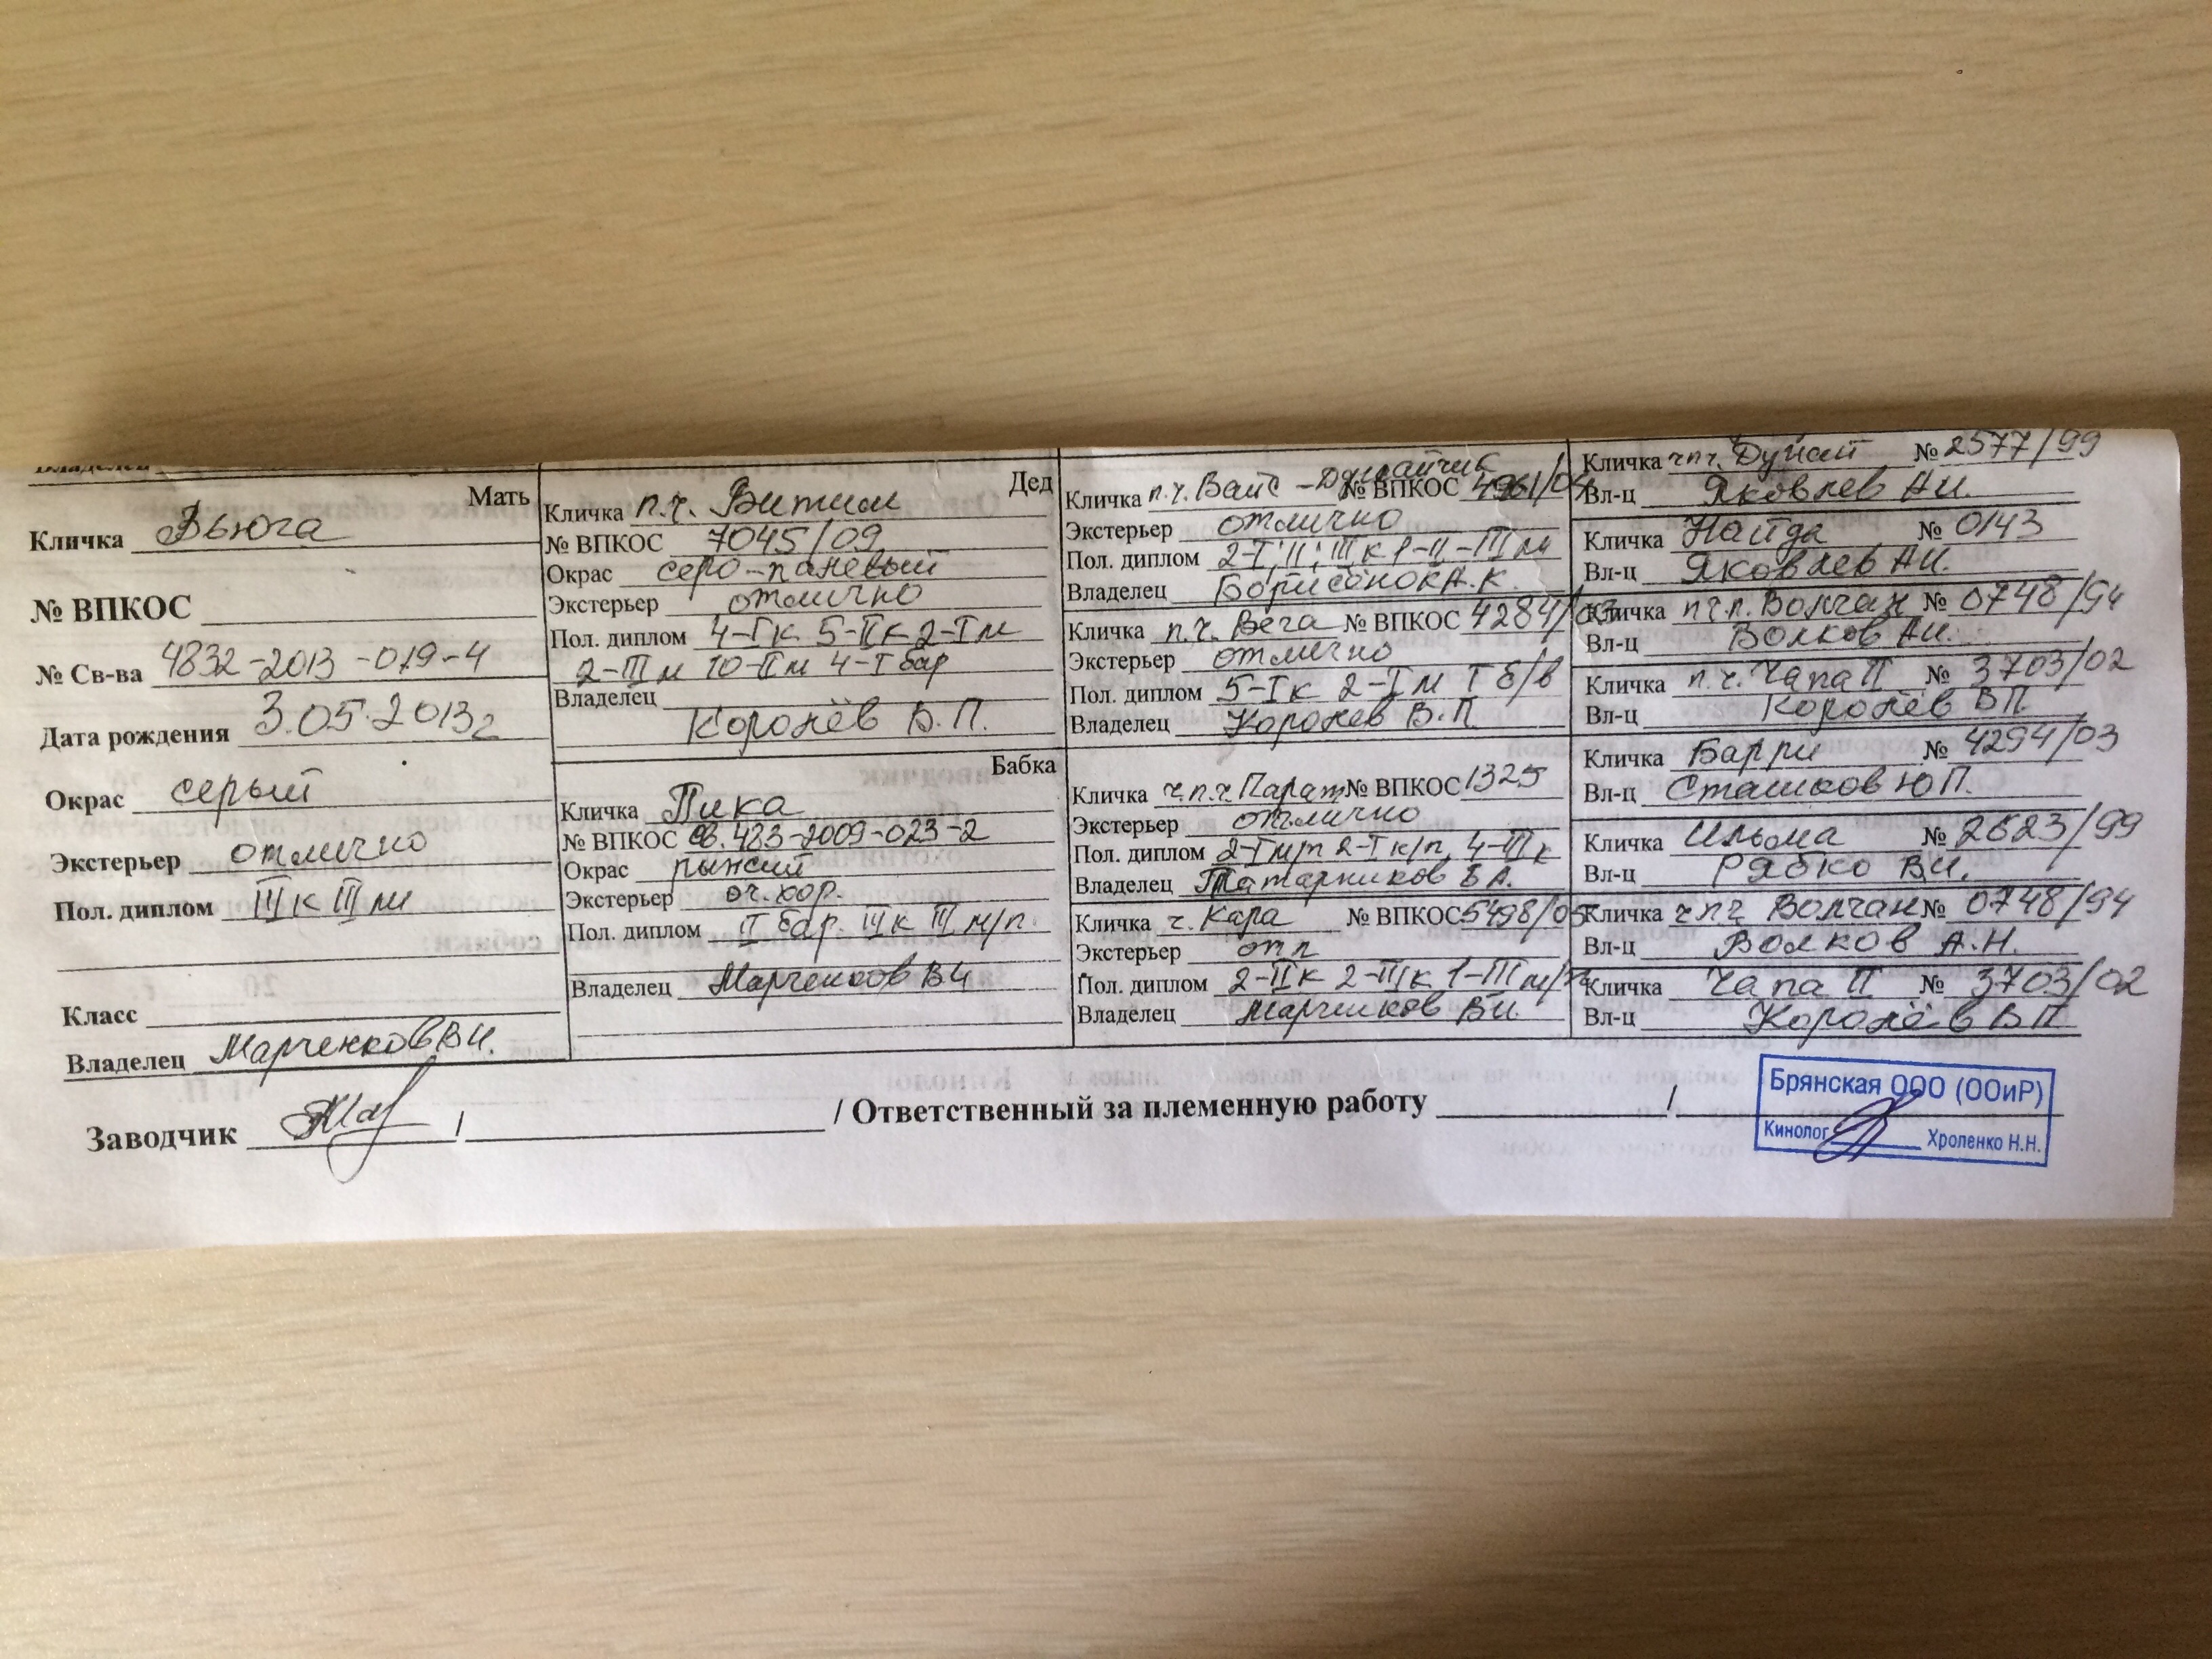 Владелец
Мать
Кличка Вьюга
№ ВПКОС
№ Св-ва 4832-2013-019-4
Дата рождения 3.05.2013г
Окрас серый
Экстерьер отлично
Пол. диплом IIIк IIIм
Класс
Владелец Марченков В.И.
Дед
Кличка п.ч. Витим
№ ВПКОС 7045/09
Окрас серо-палевый
Экстерьер отлично
Пол. диплом 4-Iк 5-IIк 2-Iм
2-IIIм 10-IIм 4-I бар
Владелец
Королёв В.П.
Бабка
Кличка Пика
№ ВПКОС св. 483-2009-023-2
Окрас рыжий
Экстерьер оч. хор.
Пол. диплом II бар. IIIк III м/п.
Владелец Марченков ВИ
Кличка п.ч. Вайс-Дунайчик № ВПКОС
Экстерьер отлично
Пол. диплом 2-I; II; III к 1-II-III м
Владелец Борисёнок А.К.
Кличка п.ч. Вега № ВПКОС 4284/03
Экстерьер отлично
Пол. диплом 5-Iк 2-Iм I б/в
Владелец Королев В.П.
Кличка ч.п.ч. Парат № ВПКОС 1325
Экстерьер отлично
Пол. диплом 2-Iм/п 2-Iк/п, 4-IIIк
Владелец Татарников Б А.
Кличка ч. Кара № ВПКОС 5498/05
Экстерьер отл
Пол. диплом 2-IIк 2-IIIк 1-III м/п
Владелец Марченков В.И.
Кличка чпч. Дунай № 2577/99
Вл-ц Яковлев А.И.
Кличка Найда № 0143
Вл-ц Яковлев А.И.
Кличка Волчан № 0748/94
Вл-ц Волков А.И.
Кличка п.ч. Чапа II № 3703/02
Вл-ц Королёв ВП
Кличка Барри № 4294/03
Вл-ц Сташков Ю П.
Кличка Ильма № 2623/99
Вл-ц Рябко В.И.
Кличка ч.п.ч Волчан № 0748/94
Вл-ц Волков А.Н.
Кличка Чапа II № 3703/02
Вл-ц Королёв В П
Заводчик / / Ответственный за племенную работу /
Брянская ООО (ООиР)
Кинолог Хроленко Н.Н.